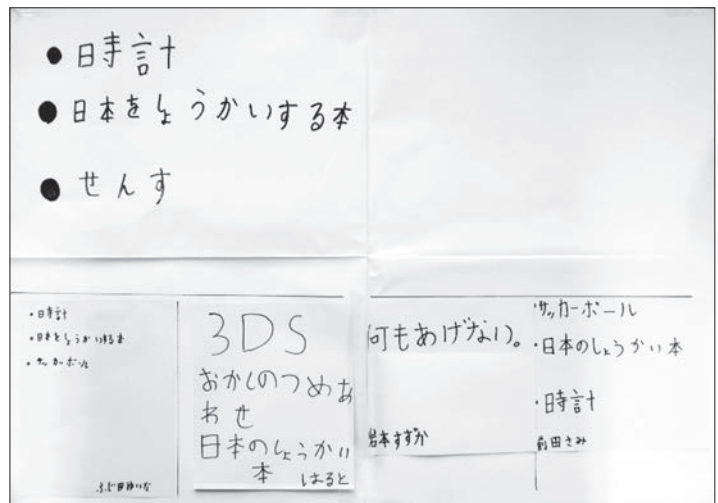 ●日時計
●日本をしょうかいする本
●せんす
・日時計
・日本をしょうかいする本
・サッカーボール
ふじ田ゆいな
3DS
おかしのつめあ
わせ
日本のしょうかい
本
はると
何もあげない。
岩本すずか
・サッカーボール
・日本のしょうかい本
・日時計
前田さみ